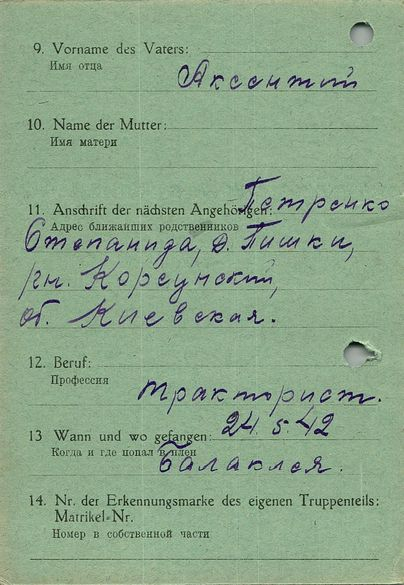 9. Vorname des Vaters:
Имя отца
Аксентий
10. Name der Mutter:
Имя матери
11. Anschrift der nächsten Angehörigen: Петренко
Адрес ближайших родственников
Степанида, д. Пишки,
рн. Корсунский,
об. Киевская.
12. Beruf:
Профессия
тракторист.
13 Wann und wo gefangen: 24.5.42
Когда и где попал в плен
Балаклея.
14. Nr. der Erkennungsmarke des eigenen Truppenteils:
Matrikel-Nr.
Номер в собственной части